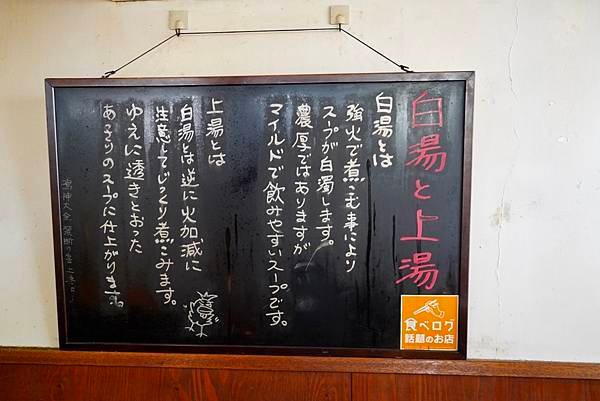 白湯と上湯
白湯とは
強火で煮こむ事により
スープが白濁します。
濃厚ではありますが
マイルドで飲みやすいスープです。
上湯とは
白湯とは逆に火加減に
注意してじっくり煮こみます。
ゆえに透きとおった
あっさりのスープに仕上がります。
食べログ
話題のお店